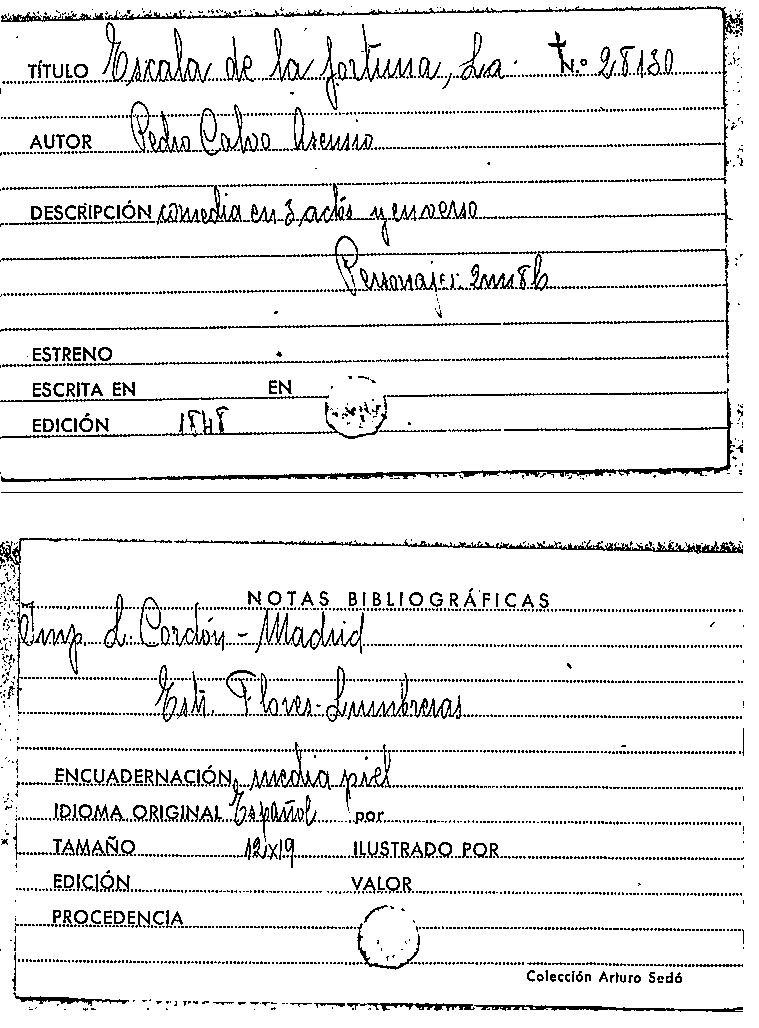 TÍTULO Escala de la fortuna, La. N.º 28130
AUTOR Pedro Calvo Asensio
DESCRIPCIÓN comedia en 3 actos y en verso
Personajes: 2m 8h
ESTRENO
ESCRITA EN EN
EDICIÓN 1848
NOTAS BIBLIOGRÁFICAS
Imp. L. Cordón - Madrid
Estr. Flores-Lumbreras
ENCUADERNACIÓN media piel
IDIOMA ORIGINAL Español por
TAMAÑO 12x19 ILUSTRADO POR
EDICIÓN VALOR
PROCEDENCIA
Colección Arturo Sedó